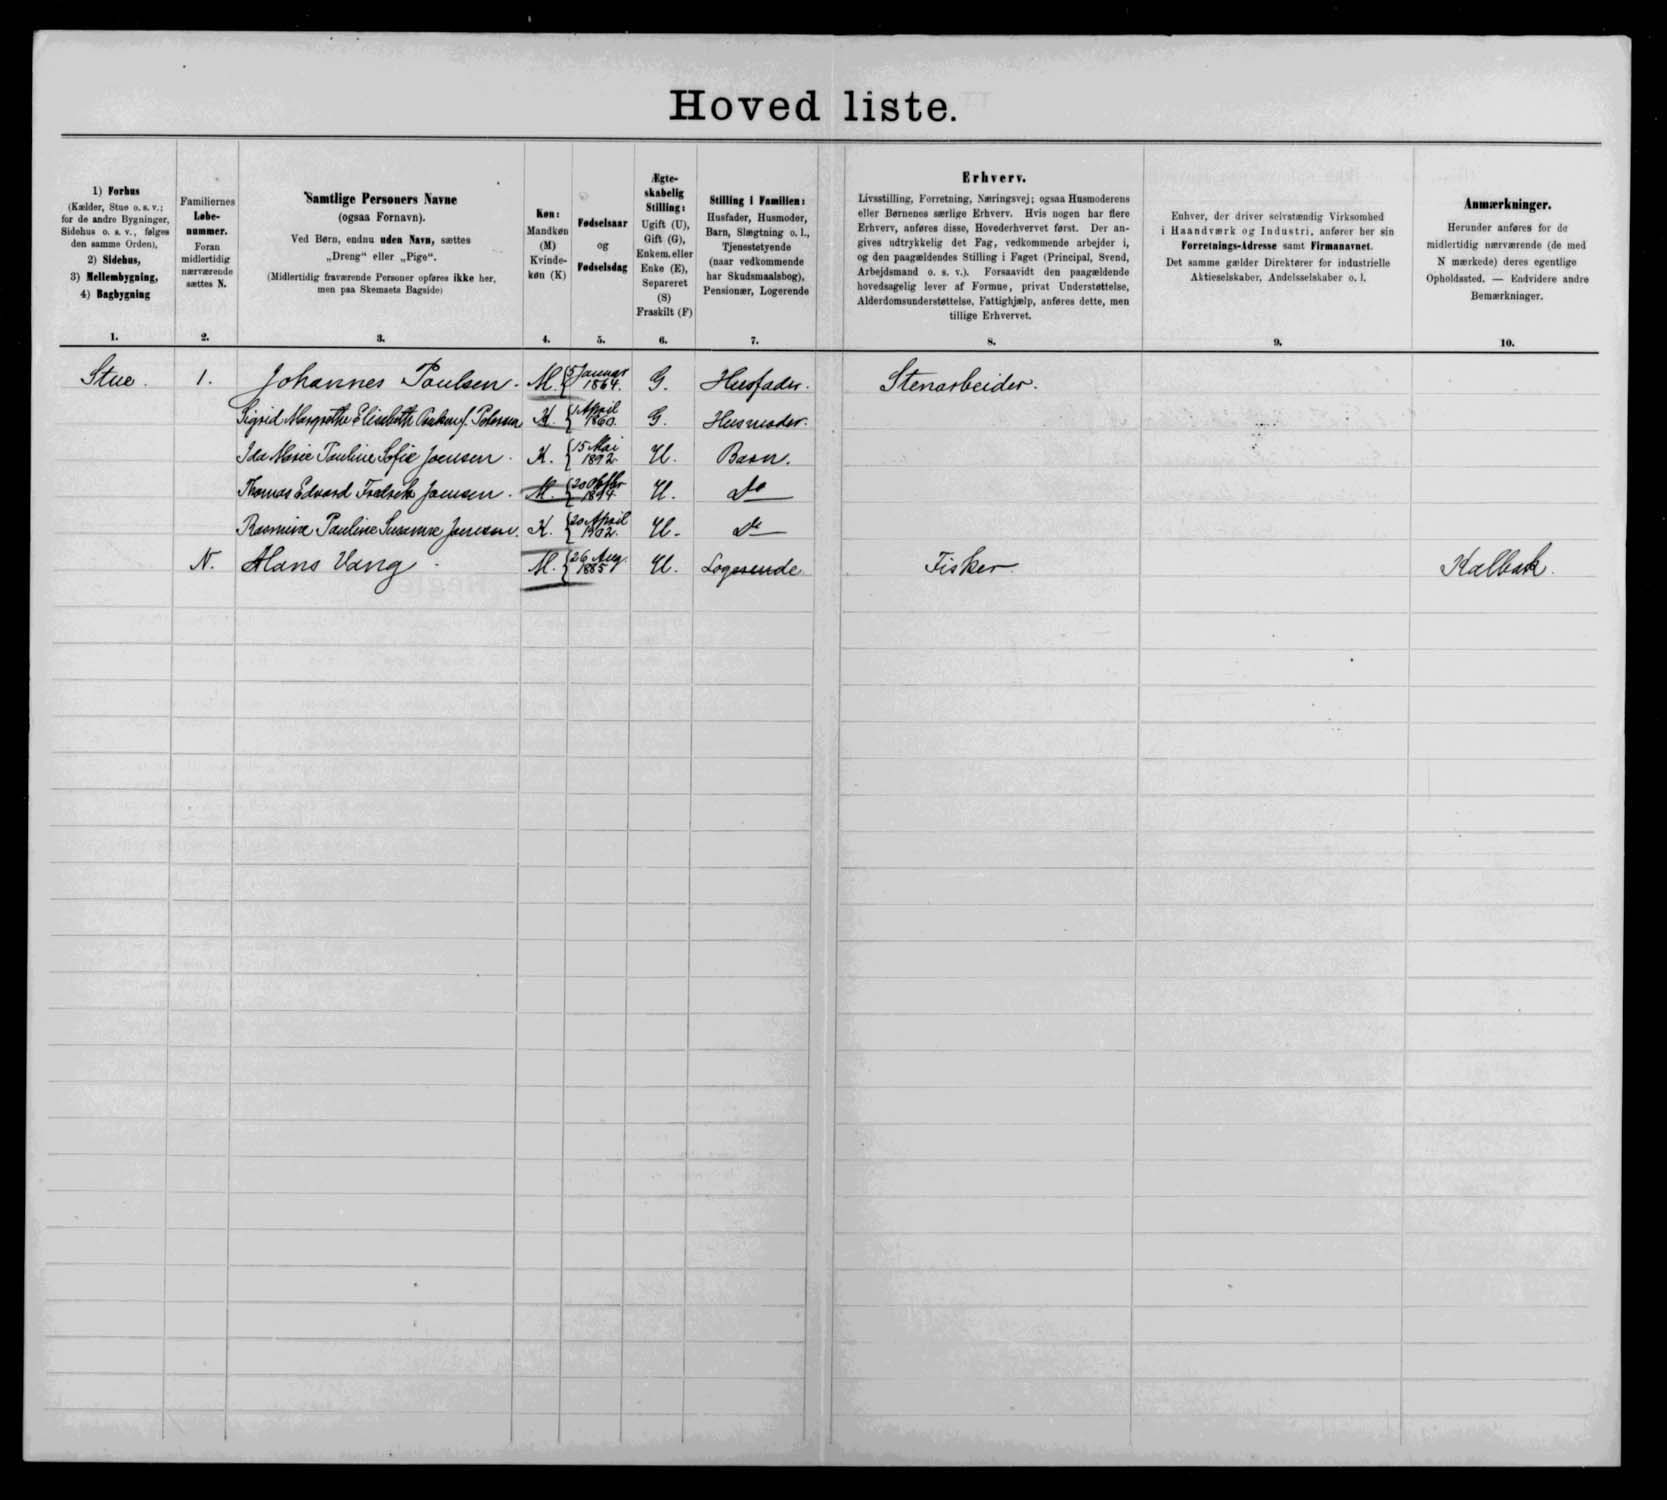 Hoved liste.
1) Forhus
(Kælder, Stue o. s. v.;
for de andre Bygninger,
Sidehus o. s. v., følges
den samme Orden),
2) Sidehus,
3) Mellembygning,
4) Bagbygning
1.
Familiernes
Løbe-
nummer.
Foran
midlertidig
nærværende
sættes N.
2.
Samtlige Personers Navne
(ogsaa Fornavn).
Ved Børn, endnu uden Navn, sættes
„Dreng“ eller „Pige“.
(Midlertidig fraværende Personer opføres ikke her,
men paa Skemaets Bagside)
3.
Køn:
Mandkøn
(M)
Kvinde-
køn (K)
4.
Fødselsaar
og
Fødselsdag
5.
Ægte-
skabelig
Stilling:
Ugift (U),
Gift (G),
Enkem. eller
Enke (E),
Separeret
(S)
Fraskilt (F)
6.
Stilling i Familien:
Husfader, Husmoder,
Barn, Slægtning o. l.,
Tjenestetyende
(naar vedkommende
har Skudsmaalsbog),
Pensionær, Logerende
7.
Erhverv.
Livsstilling, Forretning, Næringsvej; ogsaa Husmoderens
eller Børnenes særlige Erhverv. Hvis nogen har flere
Erhverv, anføres disse, Hovederhvervet først. Der an-
gives udtrykkelig det Fag, vedkommende arbejder i,
og den paagældendes Stilling i Faget (Principal, Svend,
Arbejdsmand o. s. v.). Forsaavidt den paagældende
hovedsagelig lever af Formue, privat Understøttelse,
Alderdomsunderstøttelse, Fattighjælp, anføres dette, men
tillige Erhvervet.
8.
Enhver, der driver selvstændig Virksomhed
i Haandværk og Industri, anfører her sin
Forretnings-Adresse samt Firmanavnet.
Det samme gælder Direktører for industrielle
Aktieselskaber, Andelsselskaber o. l.
9.
Anmærkninger.
Herunder anføres for de
midlertidig nærværende (de med
N mærkede) deres egentlige
Opholdssted. — Endvidere andre
Bemærkninger.
10.
Stue. 1. Johannes Poulsen. M. 5 Januar 1864. G. Husfader. Stenarbeider.
Sigrid Margrethe Elisabeth f. Petersen K. 1 April 1860. G. Husmoder.
Ida Marie Pauline Sofie Joensen. K. 15 Mai 1892 U. Barn.
Thomas Edvard Fredrik Joensen. M. 20 1894 U. Do
Rasmine Pauline Susanne Joensen. K. 20 April 1902. U. Do
N. Hans Vang M. 26 Aug. 1885 U. Logerende Fisker. Kalbak.